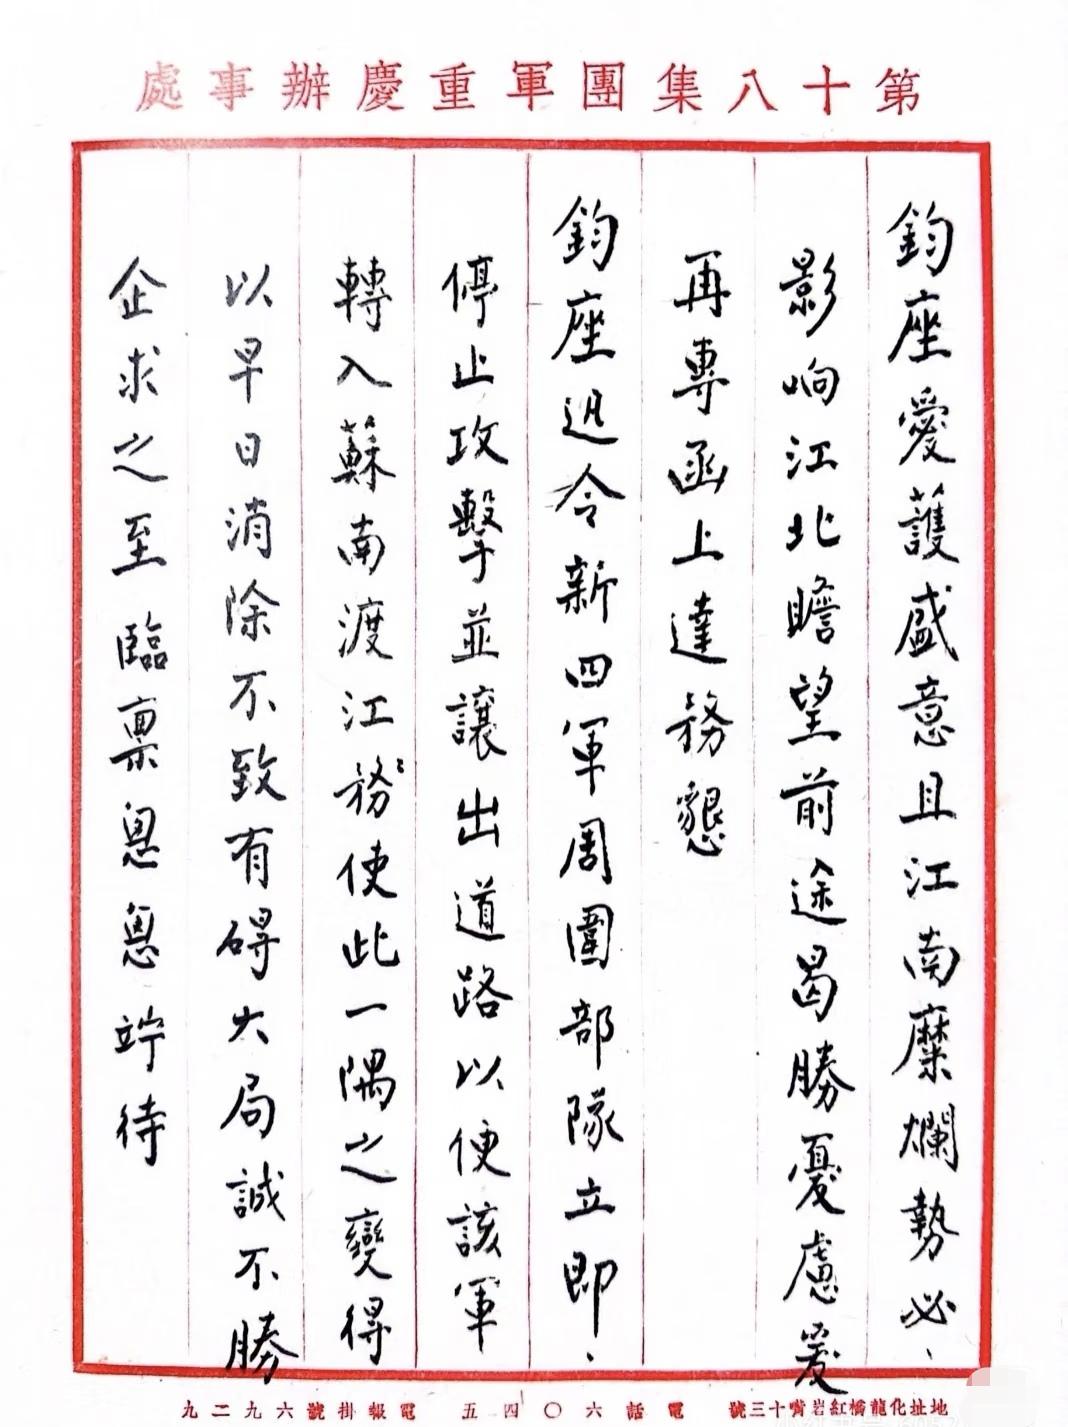 第十八集團軍重慶辦事處
鈞座愛護盛意且江南糜爛勢必、
影响江北瞻望前途曷勝憂慮爰
再專函上達務懇
鈞座迅令新四軍周圍部隊立即、
停止攻擊並讓出道路以便該軍
轉入蘇南渡江務使此一隅之變得
以早日消除不致有碍大局誠不勝
企求之至 臨稟悤悤竚待
地址化龍橋紅岩嘴十三號 電話六〇四五 電報掛號六九二九